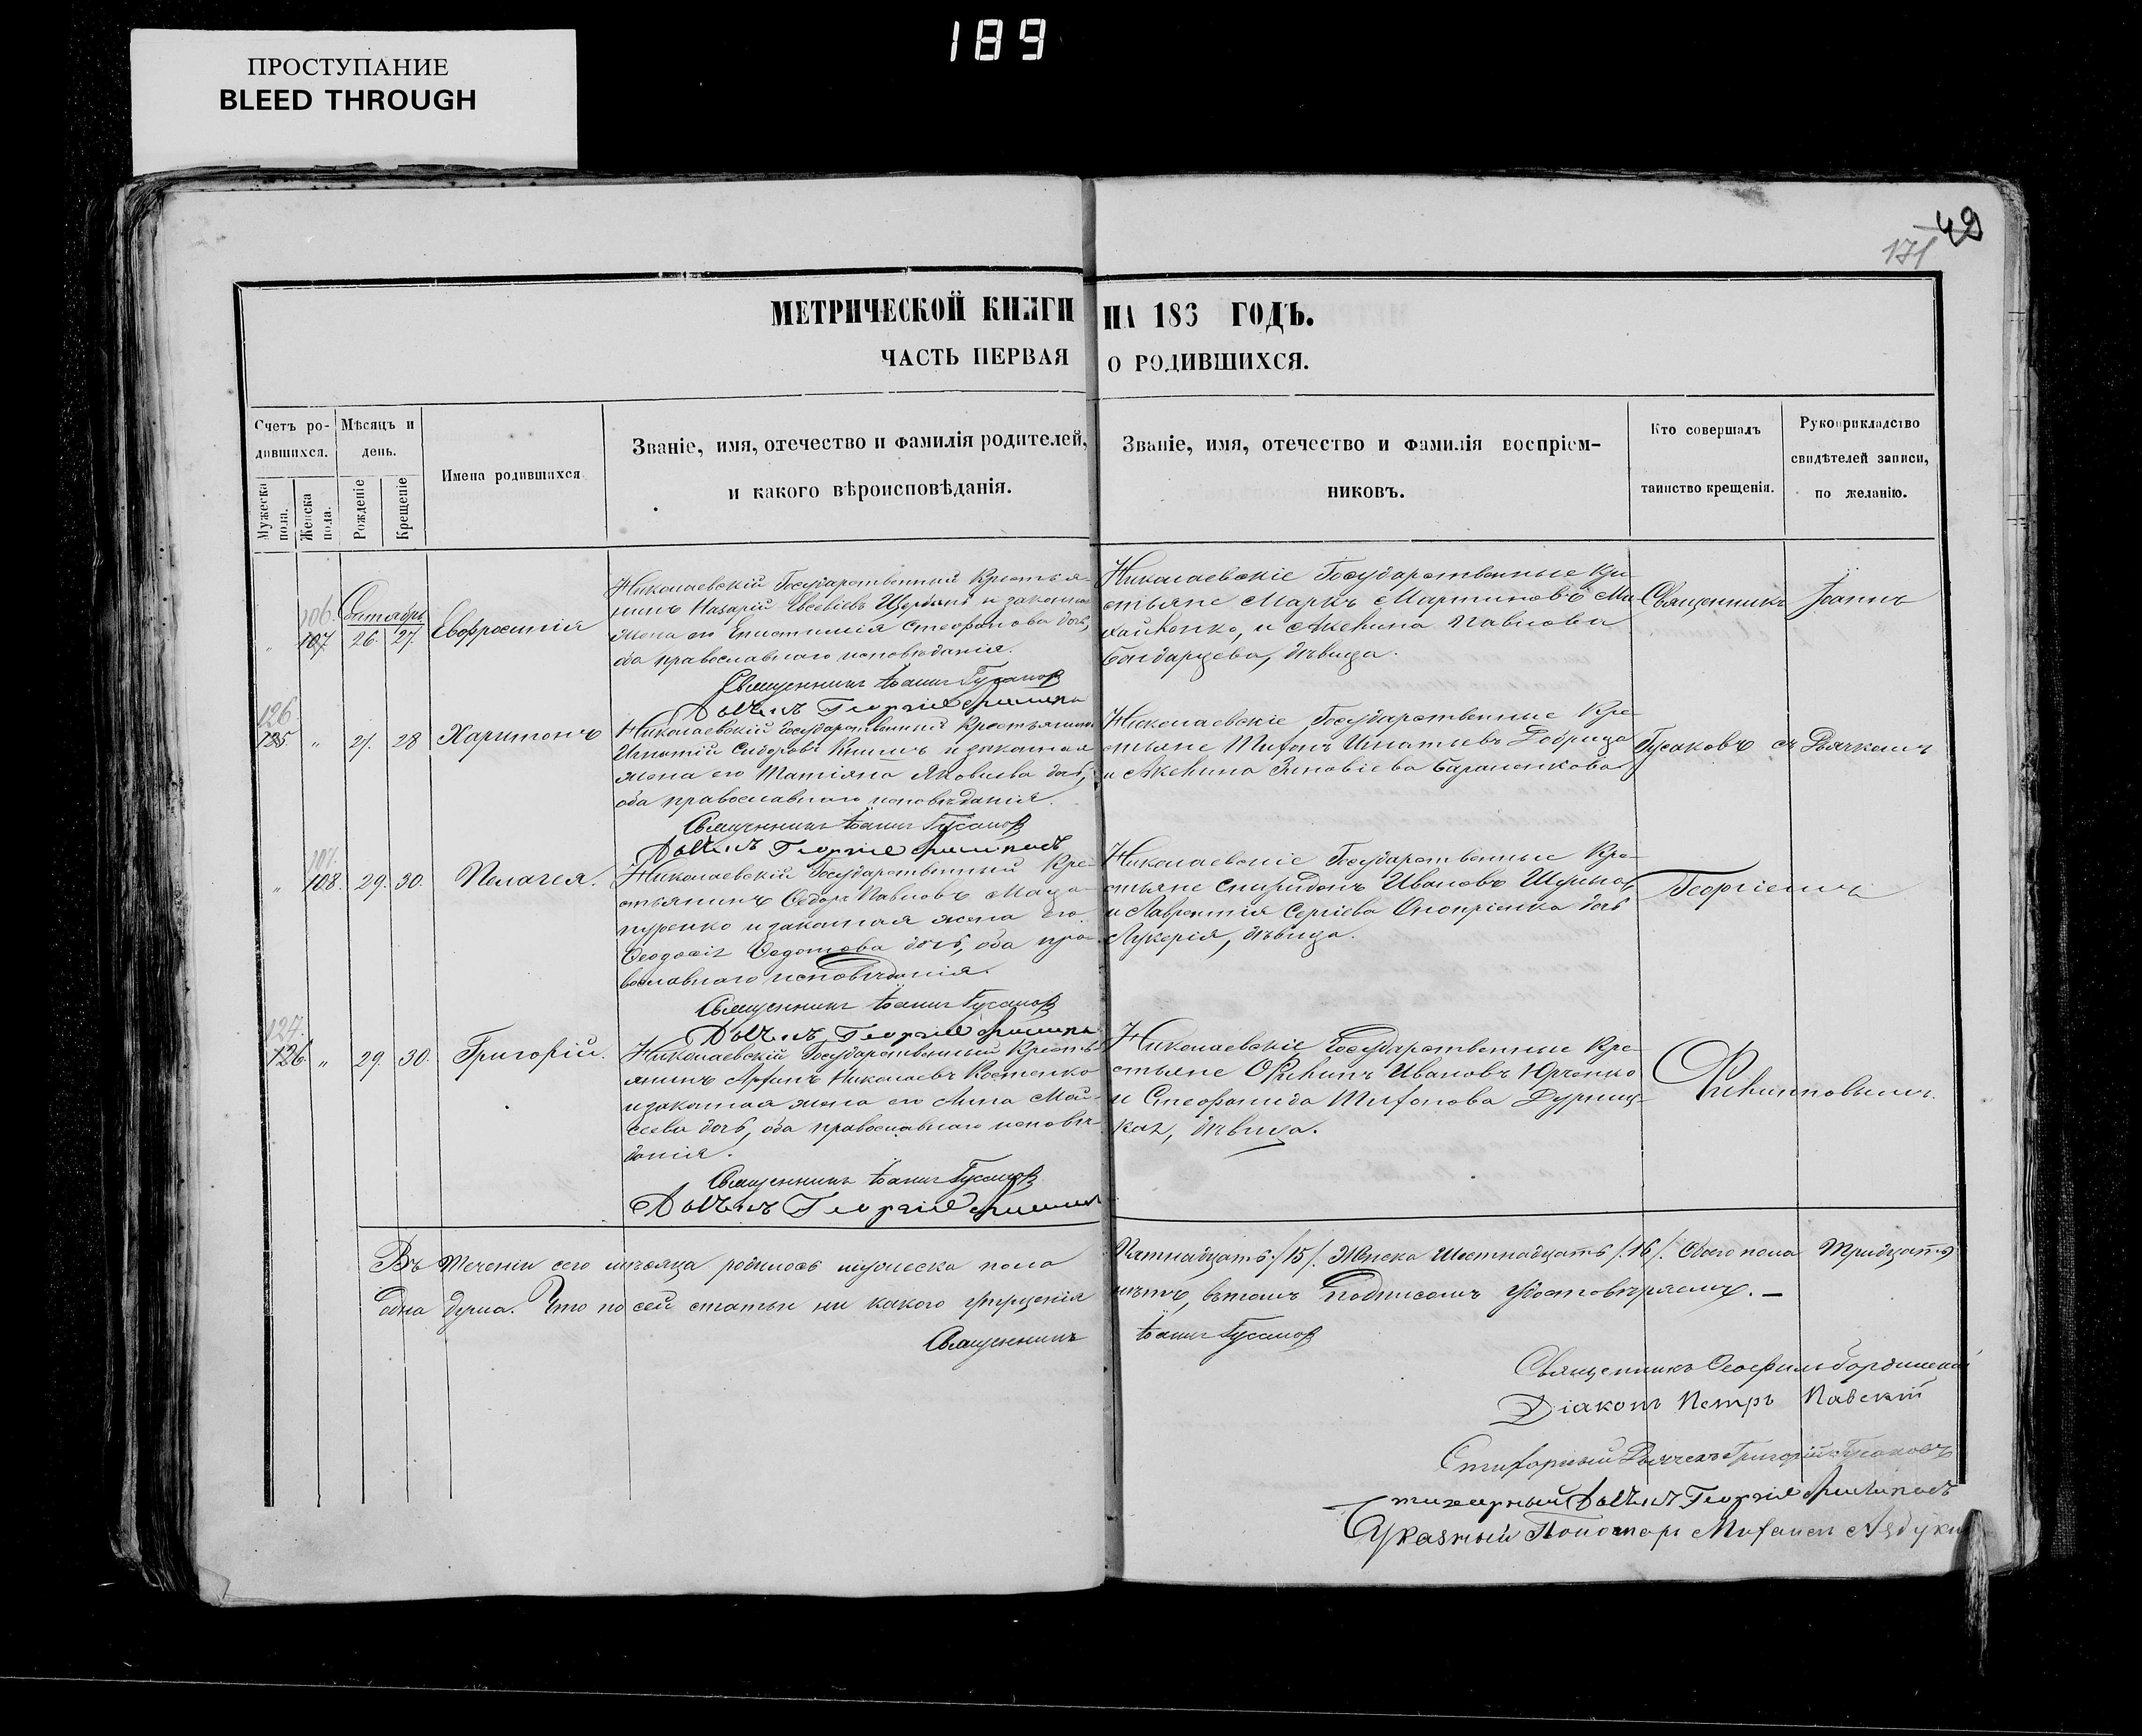 189
ПРОСТУПАНИЕ
BLEED THROUGH
49
171
МЕТРИЧЕСКОЙ КНИГИ НА 186 ГОДЪ.
ЧАСТЬ ПЕРВАЯ О РОДИВШИХСЯ.
Счетъ ро-
дившихся.
Мужеска пола.
Женска пола.
Мѣсяцъ и
день.
Рожденіе
Крещеніе
Имена родившихся
Званіе, имя, отечество и фамилія родителей,
и какого вѣроисповѣданія.
Званіе, имя, отечество и фамилія воспріем-
никовъ.
Кто совершалъ
таинство крещенія.
Рукоприкладство
свидѣтелей записи,
по желанію.
106.
107. 26. 27. Евфросинія
Николаевскій Государственный Крестья-
нинъ Назарій Евсевіевъ и законная
жена его Епистимія Стефанова дочь,
оба православнаго исповѣданія.
Священникъ Іоаннъ Гусаковъ
Николаевскіе Государственные Кре-
стьяне Маркъ Мартиновъ Ми-
хайленко, и Акелина Павлова
Бондарцева, дѣвица.
Священникъ Іоаннъ
126
125. " 27. 28 Харитонъ
Николаевскій Государственный Крестьянинъ
Игнатій Сидоровъ и законная
жена его Татіяна Яковлева дочь,
оба православнаго исповѣданія.
Священникъ Іоаннъ Гусаковъ
Николаевскіе Государственные Кре-
стьяне Тихонъ Игнатьевъ Добрица
и Акелина Зиновіева Бараненкова
Гусаковъ съ Дьячкомъ
107.
" 108. 29. 30. Пелагея.
Николаевскій Государственный Кре-
стьянинъ Ѳедоръ Павловъ Маца-
пуренко и законная жена его
Ѳеодосія Ѳедотова дочь, оба пра-
вославнаго исповѣданія.
Священникъ Іоаннъ Гусаковъ
Николаевскіе Государственные Кре-
стьяне Спиридонъ Ивановъ
и Лаврентія Сергіева Оноприенка дочь
Лукерія, дѣвица.
Георгіемъ
127.
126. " 29. 30. Григорій.
Николаевскій Государственный Кресть-
янинъ Николаевъ Костенко
и законная жена его Анна Мои-
сеева дочь, оба православнаго исповѣ-
данія.
Священникъ Іоаннъ Гусаковъ
Николаевскіе Государственные Кре-
стьяне Ивановъ Юрченко
и Стефанида Тихонова Дурниц-
кая, дѣвица.
Филипповымъ.
Въ теченіи сего мѣсяца родилось мужеска пола Пятнадцать /15/. Женска Шестнадцать /16/. Обоего пола Тридцать
одна душа. Что по сей статьи ни какого упущенія нѣтъ, въ томъ подписомъ удостовѣряемъ. —
Священникъ Іоаннъ Гусаковъ
Священникъ Ѳеофилъ
Діаконъ Петръ Павскій
Стихарный Дьячекъ Григорій Гусаковъ
Стихарный Георгій Филиповъ
Указный Пономарь Михаилъ